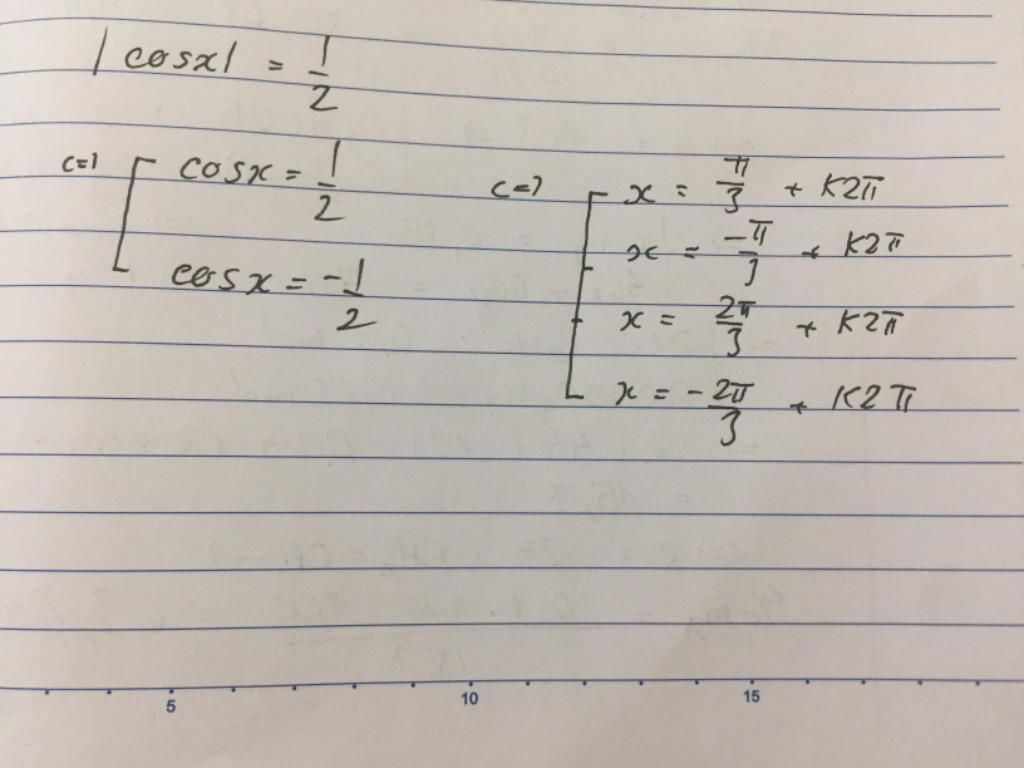 |cosx| = 1/2
<=> [ cosx = 1/2
cosx = -1/2
<=> [ x = π/3 + K2π
x = -π/3 + K2π
x = 2π/3 + K2π
x = -2π/3 + K2π
5 10 15